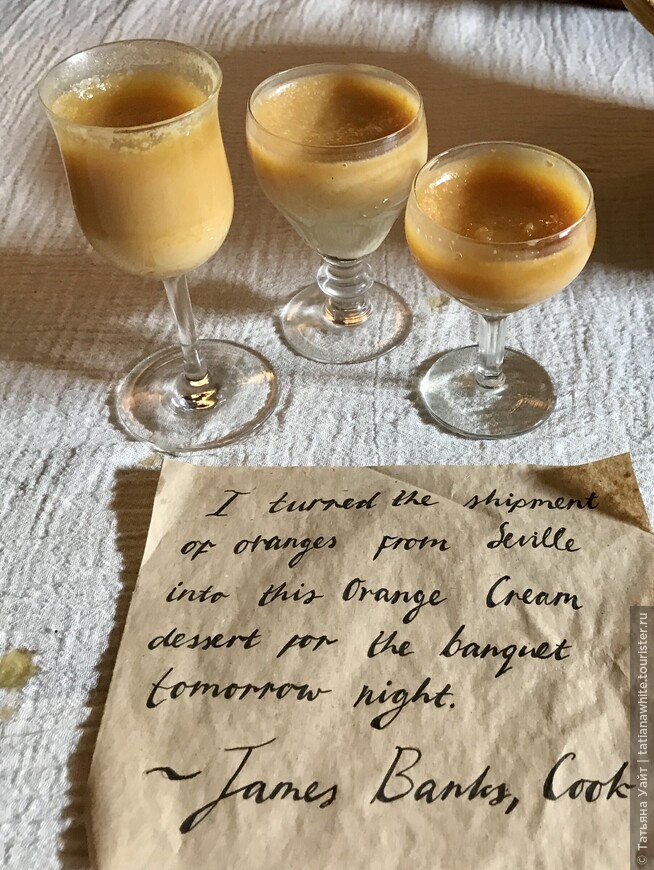 I turned the shipment
of oranges from Seville
into this Orange Cream
dessert for the banquet
tomorrow night.
~ James Banks, Cook
© Татьяна Уайт | tatianawhite.tourister.ru